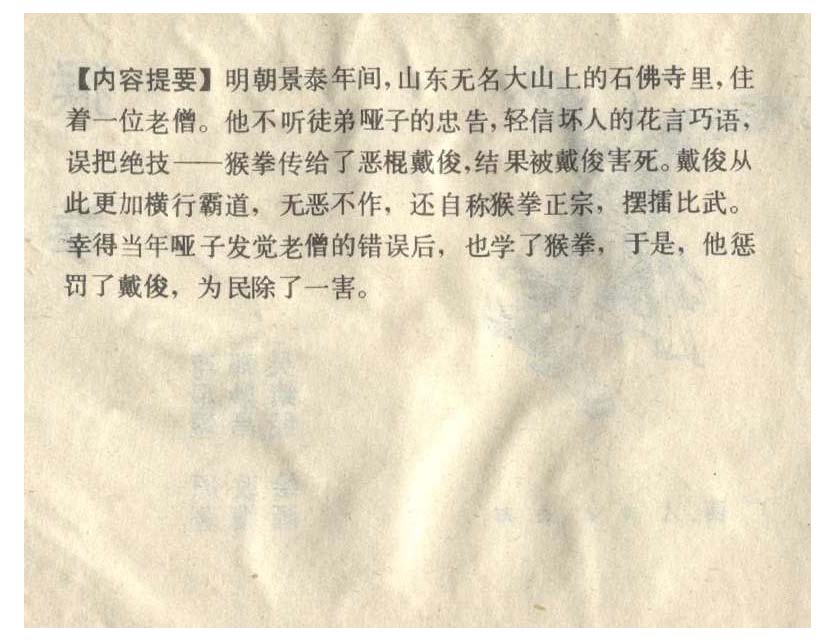 【内容提要】明朝景泰年间,山东无名大山上的石佛寺里,住
着一位老僧。他不听徒弟哑子的忠告,轻信坏人的花言巧语,
误把绝技——猴拳传给了恶棍戴俊,结果被戴俊害死。戴俊从
此更加横行霸道，无恶不作，还自称猴拳正宗，摆擂比武。
幸得当年哑子发觉老僧的错误后，也学了猴拳，于是，他惩
罚了戴俊，为民除了一害。